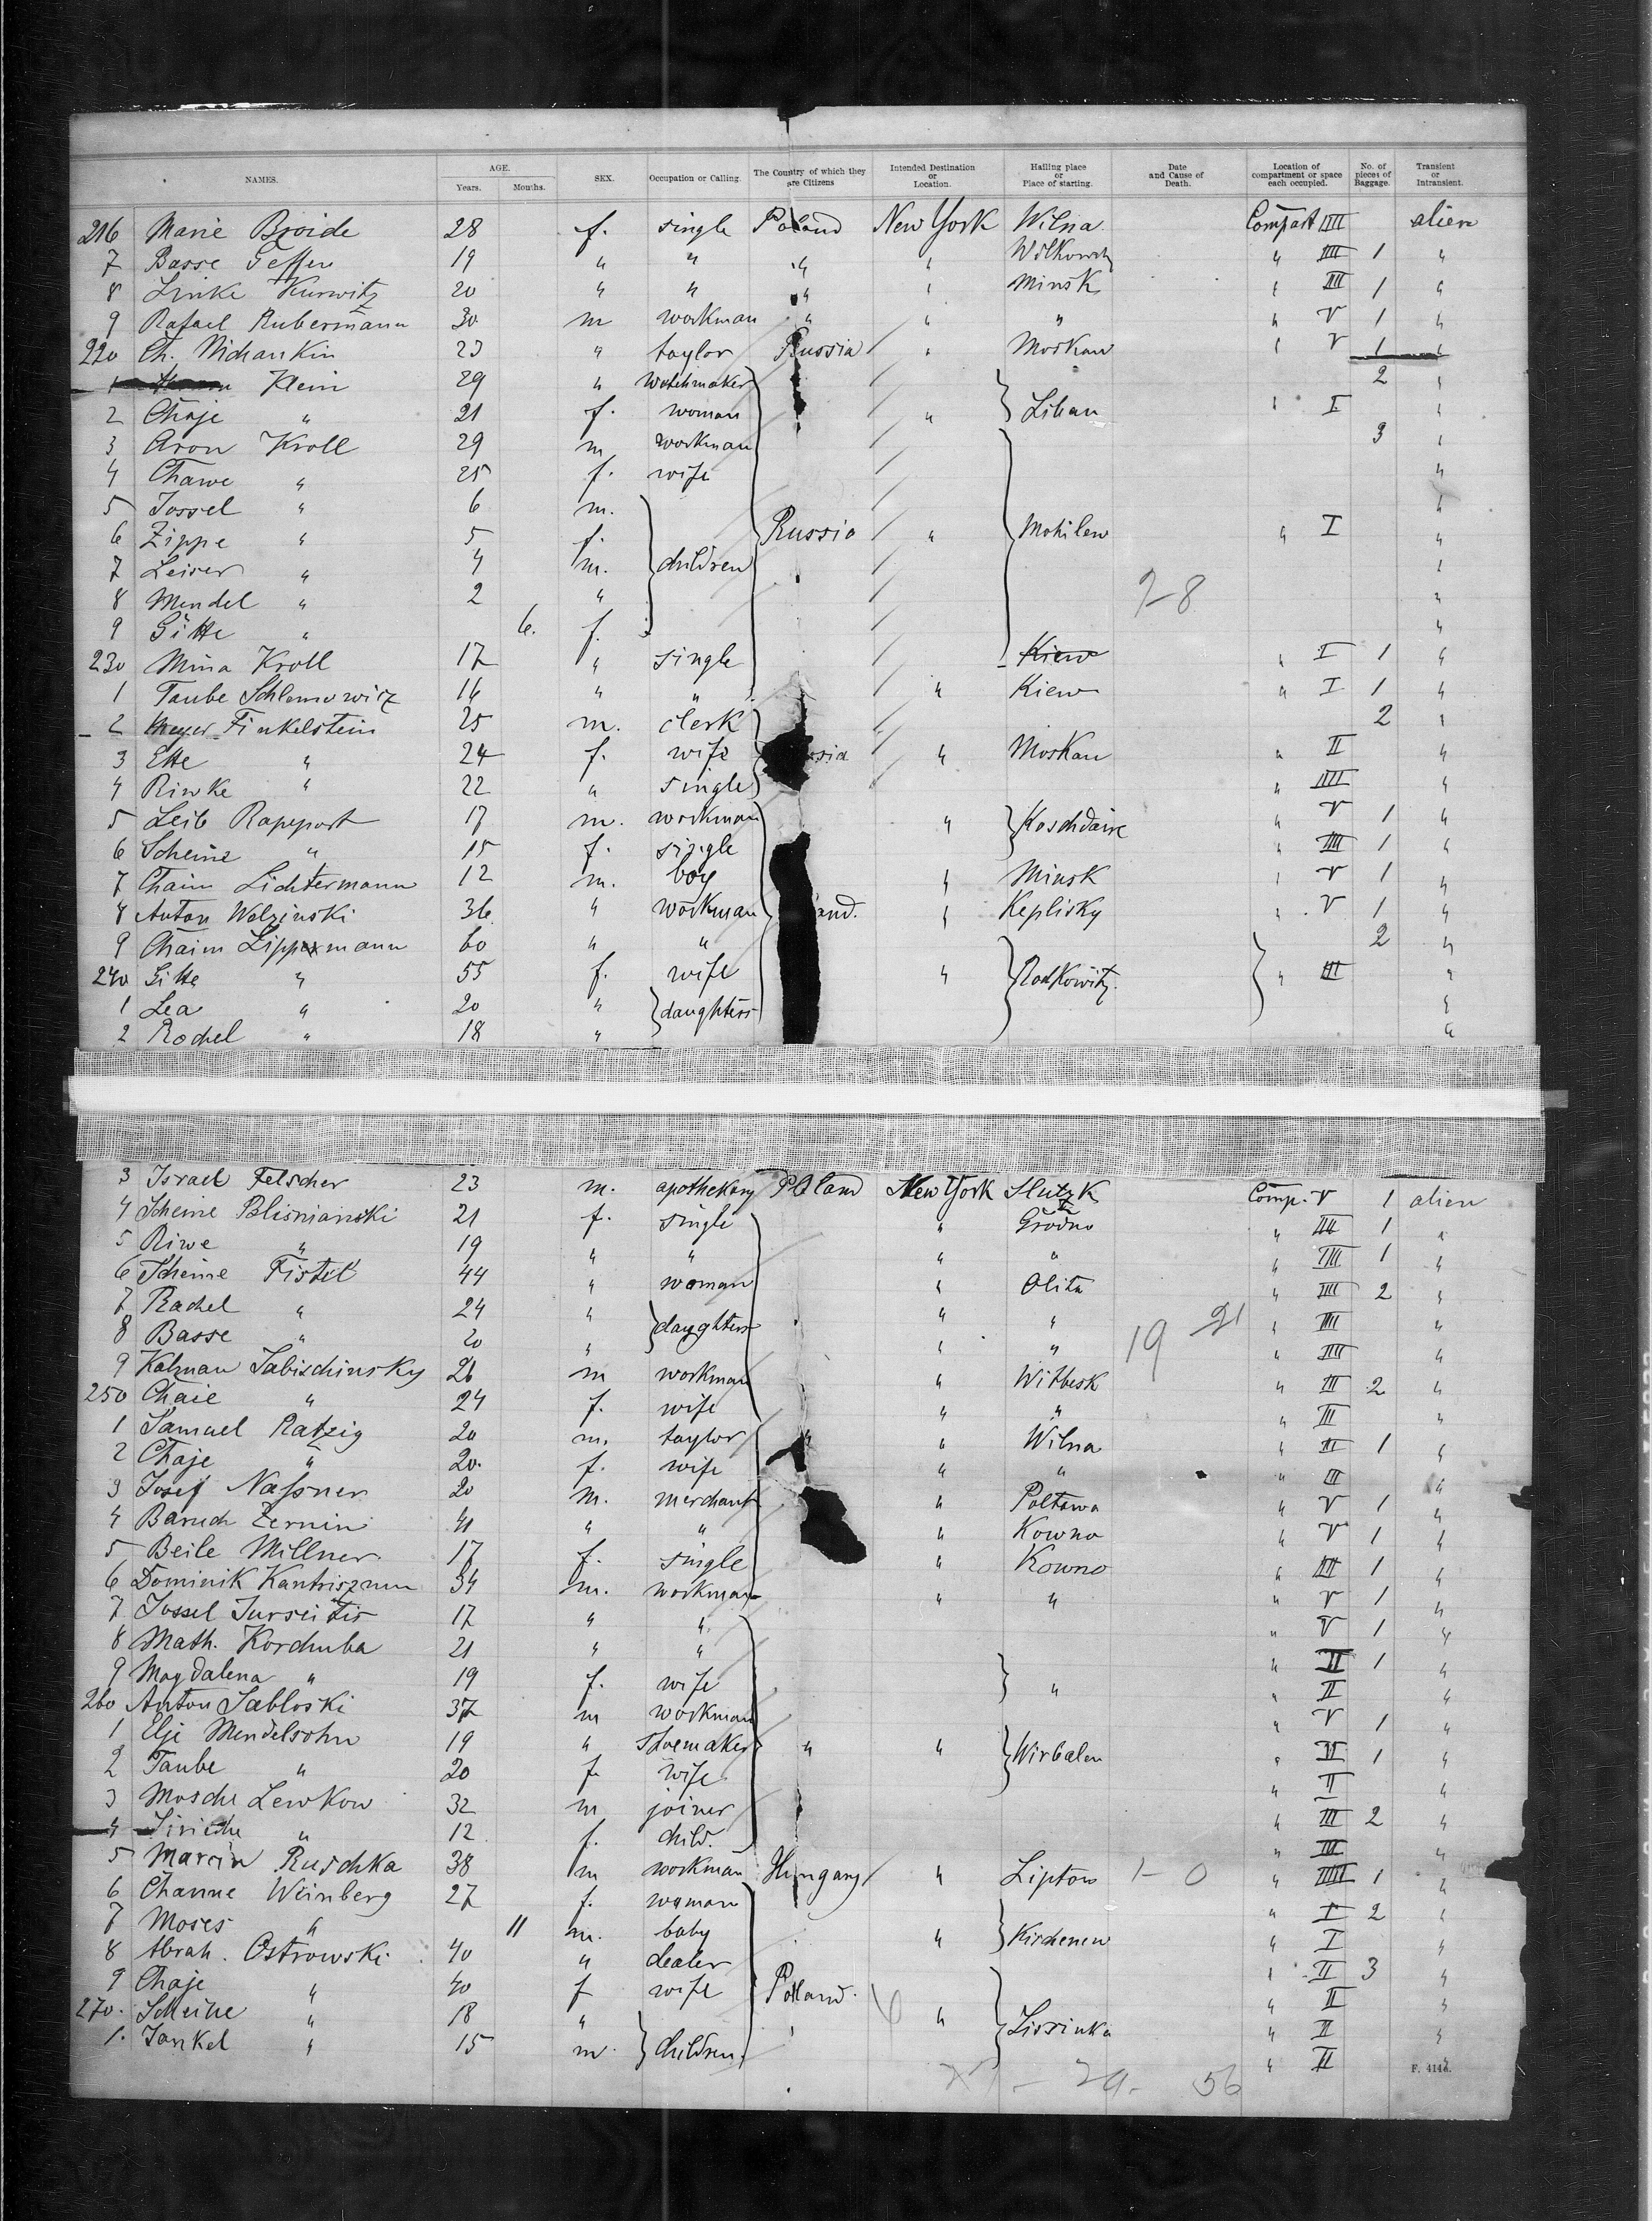 NAMES. AGE. Years. Months. SEX. Occupation or Calling. The Country of which they are Citizens Intended Destination or Location. Hailing place or Place of starting. Date and Cause of Death. Location of compartment or space each occupied. No. of pieces of Baggage. Transient or Intransient.
216 Marie Broide 28 f. single Poland New York Wilna Compart IIII alien
7 Basse 19 " " " " IIII 1 "
8 Linke Kurwitz 20 " " " " Minsk " IIII 1 "
9 Rafael Rubermann 30 m workman " " " " V 1 "
220 Ch. Nichankin 23 " taylor Russia " Moskau " V 1 "
1 Klein 29 " watchmaker 2 "
2 Chaje " 21 f. woman " Libau " I "
3 Aron Kroll 29 m workman 3 "
4 Chawe " 25 f. wife "
5 Jossel " 6 m. "
6 Zippe " 5 f. Russia " Mohilew " I "
7 Leiser " 4 m. children "
8 Mendel " 2 " 28 "
9 Gitte " 6. f. "
230 Mina Kroll 17 " single Kiew " I 1 "
1 Taube Schlemowicz 16 " " " Kiew " I 1 "
2 Meyer Finkelstein 25 m. clerk 2 "
3 Ette " 24 f. wife sia " Moskau " II "
4 Riwke " 22 " single " IIII "
5 Leib Rapeport 17 m. workman " Koschdaire " V 1 "
6 Scheine " 15 f. single " IIII 1 "
7 Chaim Lichtermann 12 m. boy " Minsk " V 1 "
8 Anton Wolzinski 36 " workman and. " Keplisky " V 1 "
9 Chaim Lippermann 60 " " 2 "
240 Gitte " 55 f. wife " Radkowitz. " III "
1 Lea " 20 " daughters "
2 Rochel " 18 " "
3 Israel Felscher 23 m. apothekary Poland New York Slutzk Comp. V 1 alien
4 Scheine Blisnianski 21 f. single " Grodno " IIII 1 "
5 Riwe " 19 " " " " " IIII 1 "
6 Scheine Fistel 44 " woman " Olita " IIII 2 "
7 Rachel " 24 " daughters " " " IIII "
8 Basse " 20 " " " 19 21 " IIII "
9 Kalman Sabischinsky 26 m workman " Witbesk " III 2 "
250 Chaie " 24 f. wife " " " III "
1 Samuel Ratzig 20 m. taylor " " Wilna " III 1 "
2 Chaje " 20. f. wife " " " III "
3 Josef Nassner 20 m. merchant " Poltawa " V 1 "
4 Baruch Zernin 41 " " " Kowno " V 1 "
5 Beile Millner 17 f. single " Kowno " IIII 1 "
6 Dominik 34 m. workman " " " V 1 "
7 Jossel Jurseitis 17 " " " V 1 "
8 Math. Kordhuba 21 " " " II 1 "
9 Magdalena " 19 f. wife " " II "
260 Anton Jabloski 37 m workman " V 1 "
1 Elje Mendelsohn 19 " shoemaker " " Wirbalen " II 1 "
2 Taube " 20 f. wife " II "
3 Mosche Lewkow 32 m joiner " III 2 "
4 " 12 f. child. " III "
5 Marcin Ruschka 38 m workman Hungary " Liptow 1-0 " IIIII 1 "
6 Channe Weinberg 27 f. woman " I 2 "
7 Moses " 11 m. baby " Kischenew " I "
8 Abrah. Ostrowski 40 " dealer " II 3 "
9 Chaje " 40 f wife Poland. " II "
270. Scheine " 18 " " Lissinka " II "
1. Jankel " 15 m children. " II "
29. 56
F. 414d.